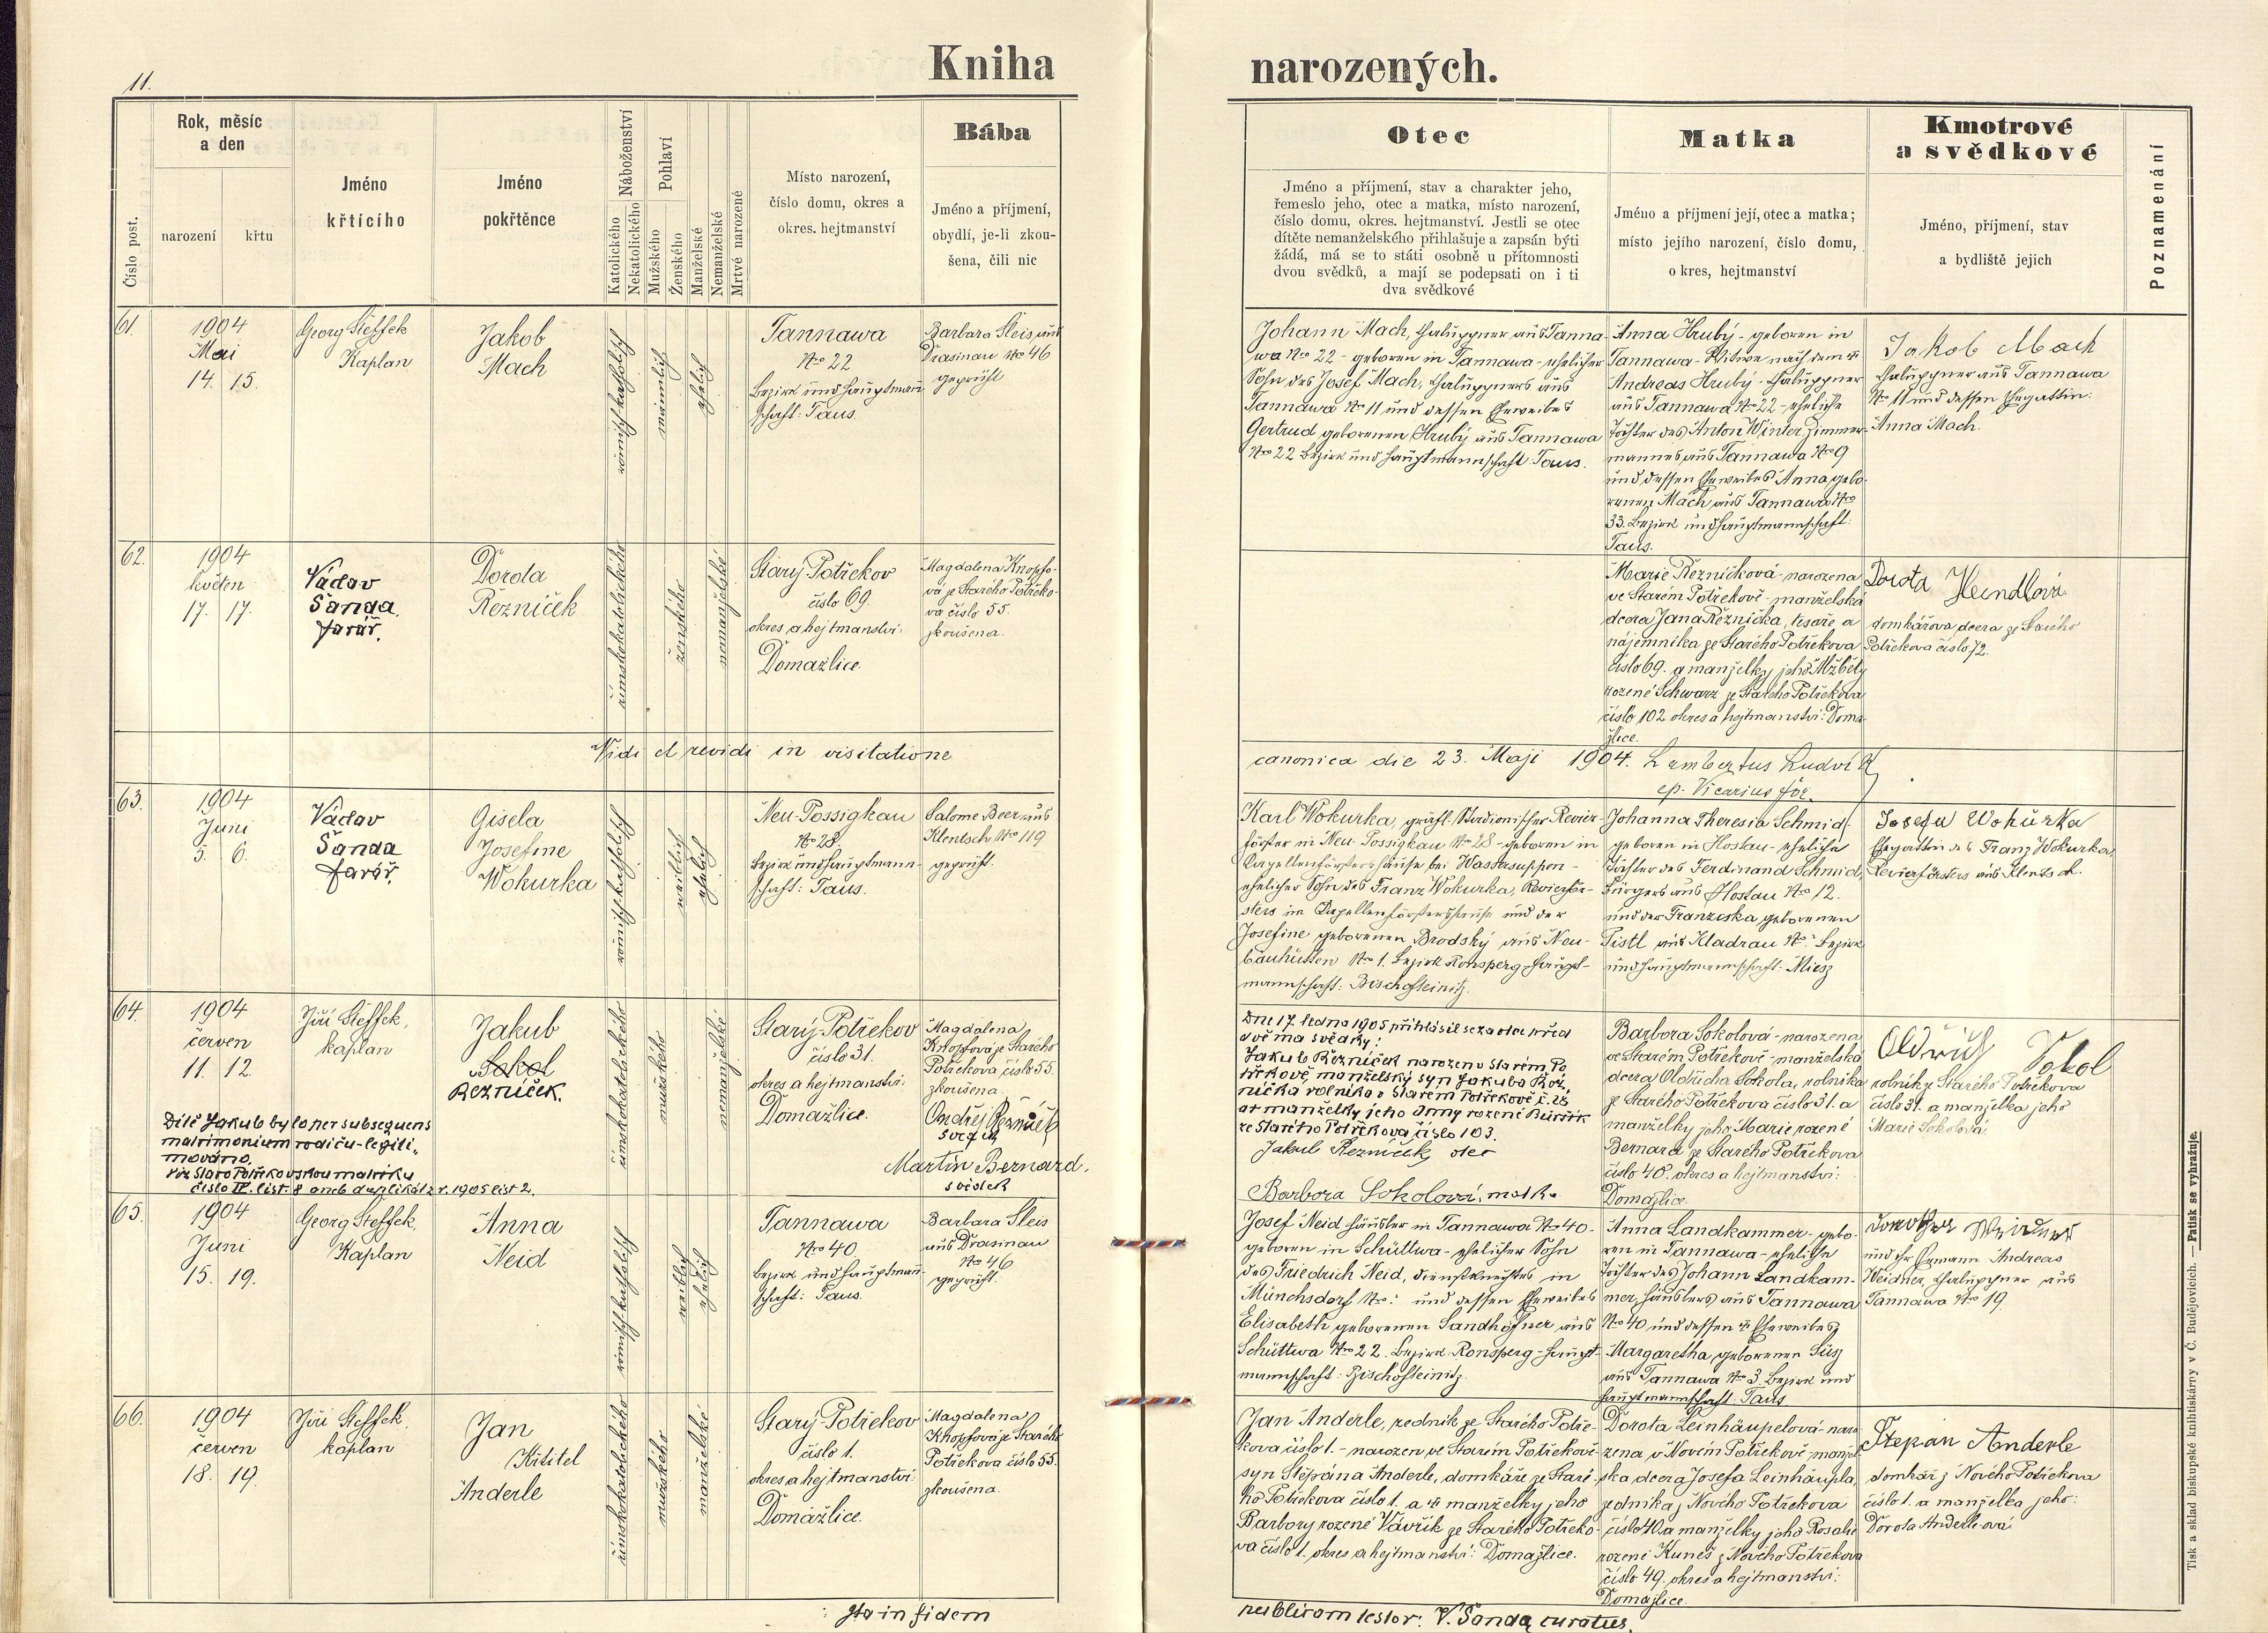 11.
Kniha
narozených.
Číslo post.
Rok, měsíc
a den
narození
křtu
Jméno
křtícího
Jméno
pokřtěnce
Náboženství
Katolického
Nekatolického
Pohlaví
Mužského
Ženského
Manželské
Nemanželské
Mrtvé narozené
Místo narození,
číslo domu, okres a
okres. hejtmanství
Bába
Jméno a příjmení,
obydlí, je-li zkou-
šena, čili nic
Otec
Jméno a příjmení, stav a charakter jeho,
řemeslo jeho, otec a matka, místo narození,
číslo domu, okres. hejtmanství. Jestli se otec
dítěte nemanželského přihlašuje a zapsán býti
žádá, má se to státi osobně u přítomnosti
dvou svědků, a mají se podepsati on i ti
dva svědkové
Matka
Jméno a příjmení její, otec a matka;
místo jejího narození, číslo domu,
okres, hejtmanství
Kmotrové
a svědkové
Jméno, příjmení, stav
a bydliště jejich
Poznamenání
61.
1904
Mai
14. 15.
Georg Steffek
Kaplan
Jakob
Mach
römisch katholisch
männlich
ehelich
Tannawa
Nro 22
Bezirk und Hauptmann-
schaft: Taus.
Barbara Sleis aus
Drasinau Nro 46
geprüft
Johann Mach, Chaluppner aus Tanna-
wa Nro 22 - geboren in Tannawa - ehelicher
Sohn des Josef Mach, Chaluppners aus
Tannawa Nro 11 und dessen Eheweibes
Gertrud geborenen Hrubý aus Tannawa
Nro 22 Bezirk und Hauptmannschaft Taus.
Anna Hrubý - geboren in
Tannawa - Witwe nach dem †
Andreas Hrubý - Chaluppner
aus Tannawa Nro 22 - eheliche
Tochter des Anton Winter, Zimmer-
mannes aus Tannawa Nro 9
und dessen Eheweibes Anna gebo-
renen Mach aus Tannawa Nro
33. Bezirk und Hauptmannschaft:
Taus.
Jakob Mach
Chaluppner aus Tannawa
Nro 11 und dessen Ehegattin:
Anna Mach.
62.
1904
květen
17. 17.
Václav
Šanda
farář.
Dorota
Řezníček
římskokatolického
ženského
nemanželské
Starý Potřekov
číslo 69.
okres a hejtmanství:
Domažlice.
Magdalena Knopfo-
vá ze Starého Potřeko-
va číslo 55.
zkoušena.
Marie Řezníčková - narozena
ve Starém Potřekově - manželská
dcera Jana Řezníčka, tesaře a
nájemníka ze Starého Potřekova
číslo 69. a manželky jeho Alžběty
rozené Schwarz ze Starého Potřekova
číslo 102 okres a hejtmanství: Doma-
žlice.
Dorota Hendlová
domkářova dcera ze Starého
Potřekova číslo 72.
Vidi et revidi in visitatione
canonica die 23. Maji 1904. Lambertus Ludvík
ep. Vicarius for.
63.
1904
Juni
5. 6.
Václav
Šanda
farář.
Gisela
Josefine
Wokurka
römisch katholisch
weiblich
ehelich
Neu-Possigkau
Nro 28.
Bezirk und Hauptmann-
schaft: Taus.
Salome Beer aus
Klentsch Nro 119
geprüft.
Karl Wokurka, gräfl. Stadionischer Revier-
förster in Neu Possigkau Nro 28 - geboren in
Kapellenförstershause bei Wassersuppen
ehelicher Sohn des Franz Wokurka, Revierför-
sters im Kapellenförstershause und der
Josefine geborenen Brodský aus Neu-
bauhütten Nro 1. Bezirk Ronsperg - Haupt-
mannschaft: Bischofteinitz.
Johanna Theresia Schmid
geboren in Hostau - eheliche
Tochter des Ferdinand Schmid,
Bürgers aus Hostau Nro 12.
und der Franziska geborenen
Pistl aus Kladrau Nro: Bezirk
und Hauptmannschaft: Miesz
Josefa Wokurka
Ehegattin des Franz Wokurka,
Revierförsters aus Klentsch.
64.
1904
červen
11. 12.
Jiří Steffek,
kaplan
Jakub
Sokol
Řezníček.
římskokatolického
mužského
nemanželské
Starý-Potřekov
číslo 31.
okres a hejtmanství:
Domažlice.
Magdalena
Knopfová ze Starého
Potřekova, číslo 55.
zkoušena.
Ondřej Řezníček
svědek
Martin Bernard.
svědek
Dítě Jakub bylo per subsequens
matrimonium rodičů - legiti-
mováno.
Viz Staro Potřekovskou matriku
číslo IV. list: 8 aneb duplikát z r. 1905 list 2.
Dne 17. ledna 1905 přihlásil se za otce před
dvěma svědky:
Jakub Řezníček narozen v Starém Po-
třekově, manželský syn Jakuba Řez-
níčka rolníka v Starém Potřekově č. 28
a manželky jeho Anny rozené
ze Starého Potřekova, číslo 103.
Jakub Řezníček, otec
Barbora Sokolová, matka
Barbora Sokolová - narozena
ve Starém Potřekově - manželská
dcera Oldřicha Sokola, rolníka
ze Starého Potřekova číslo 31. a
manželky jeho Marie rozené
Bernard ze Starého Potřekova
číslo 40. okres a hejtmanství:
Domažlice.
Oldřich Sokol
rolník ze Starého Potřekova
číslo 31. a manželka jeho
Marie Sokolová.
65.
1904
Juni
15. 19.
Georg Steffek,
Kaplan
Anna
Neid
römisch katholisch
weiblich
ehelich
Tannawa
Nro 40
Bezirk und Hauptmann-
schaft: Taus.
Barbara Sleis
aus Drasinau
Nro 46
geprüft.
Josef Neid Häusler in Tannawa Nro 40 -
geboren in Schüttwa - ehelicher Sohn
des Friedrich Neid, Dienstknechtes in
Münchsdorf Nro: und dessen Eheweibes
Elisabeth geborenen Sandhöfner aus
Schüttwa Nro 22. Bezirk: Ronsperg - Haupt-
mannschaft: Bischofteinitz.
Anna Landkammer - gebo-
ren in Tannawa - eheliche
Tochter des Johann Landkam-
mer, Häuslers aus Tannawa
Nro 40 und dessen † Eheweibes
Margaretha, geborenen Süsz
aus Tannawa Nro 3. Bezirk und
Hauptmannschaft Taus
Dorothea Weidner
und ihr Ehemann Andreas
Weidner, Chaluppner aus
Tannawa Nro 19.
66.
1904
červen
18. 19.
Jiří Steffek,
kaplan
Jan
Křtitel
Anderle
římskokatolického
mužského
manželské
Starý-Potřekov
číslo 1.
okres a hejtmanství
Domažlice.
Magdalena
Knopfová ze Starého
Potřekova číslo 55.
zkoušena.
Jan Anderle, zedník ze Starého Potře-
kova číslo 1. - narozen ve Starém Potřekově -
syn Štěpána Anderle, domkáře ze Staré-
ho Potřekova číslo 1. a † manželky jeho
Barbory rozené Vavřík ze Starého Potřeko-
va číslo 1. okres a hejtmanství: Domažlice.
Dorota Leinhäupelová - naro-
zena v Novém Potřekově - manžel-
ská dcera Josefa Leinhäupla,
zedníka z Nového Potřekova
číslo 40. a manželky jeho Rosalie
rozené Kuneš z Nového Potřekova
číslo 49. okres a hejtmanství:
Domažlice.
Štěpán Anderle
domkář z Nového Potřekova
číslo 1. a manželka jeho:
Dorota Anderle-ová
Ita in fidem
publicam testor: V. Šanda, curatus.
Tisk a sklad biskupské knihtiskárny v Č. Budějovicích. — Patisk se vyhražuje.